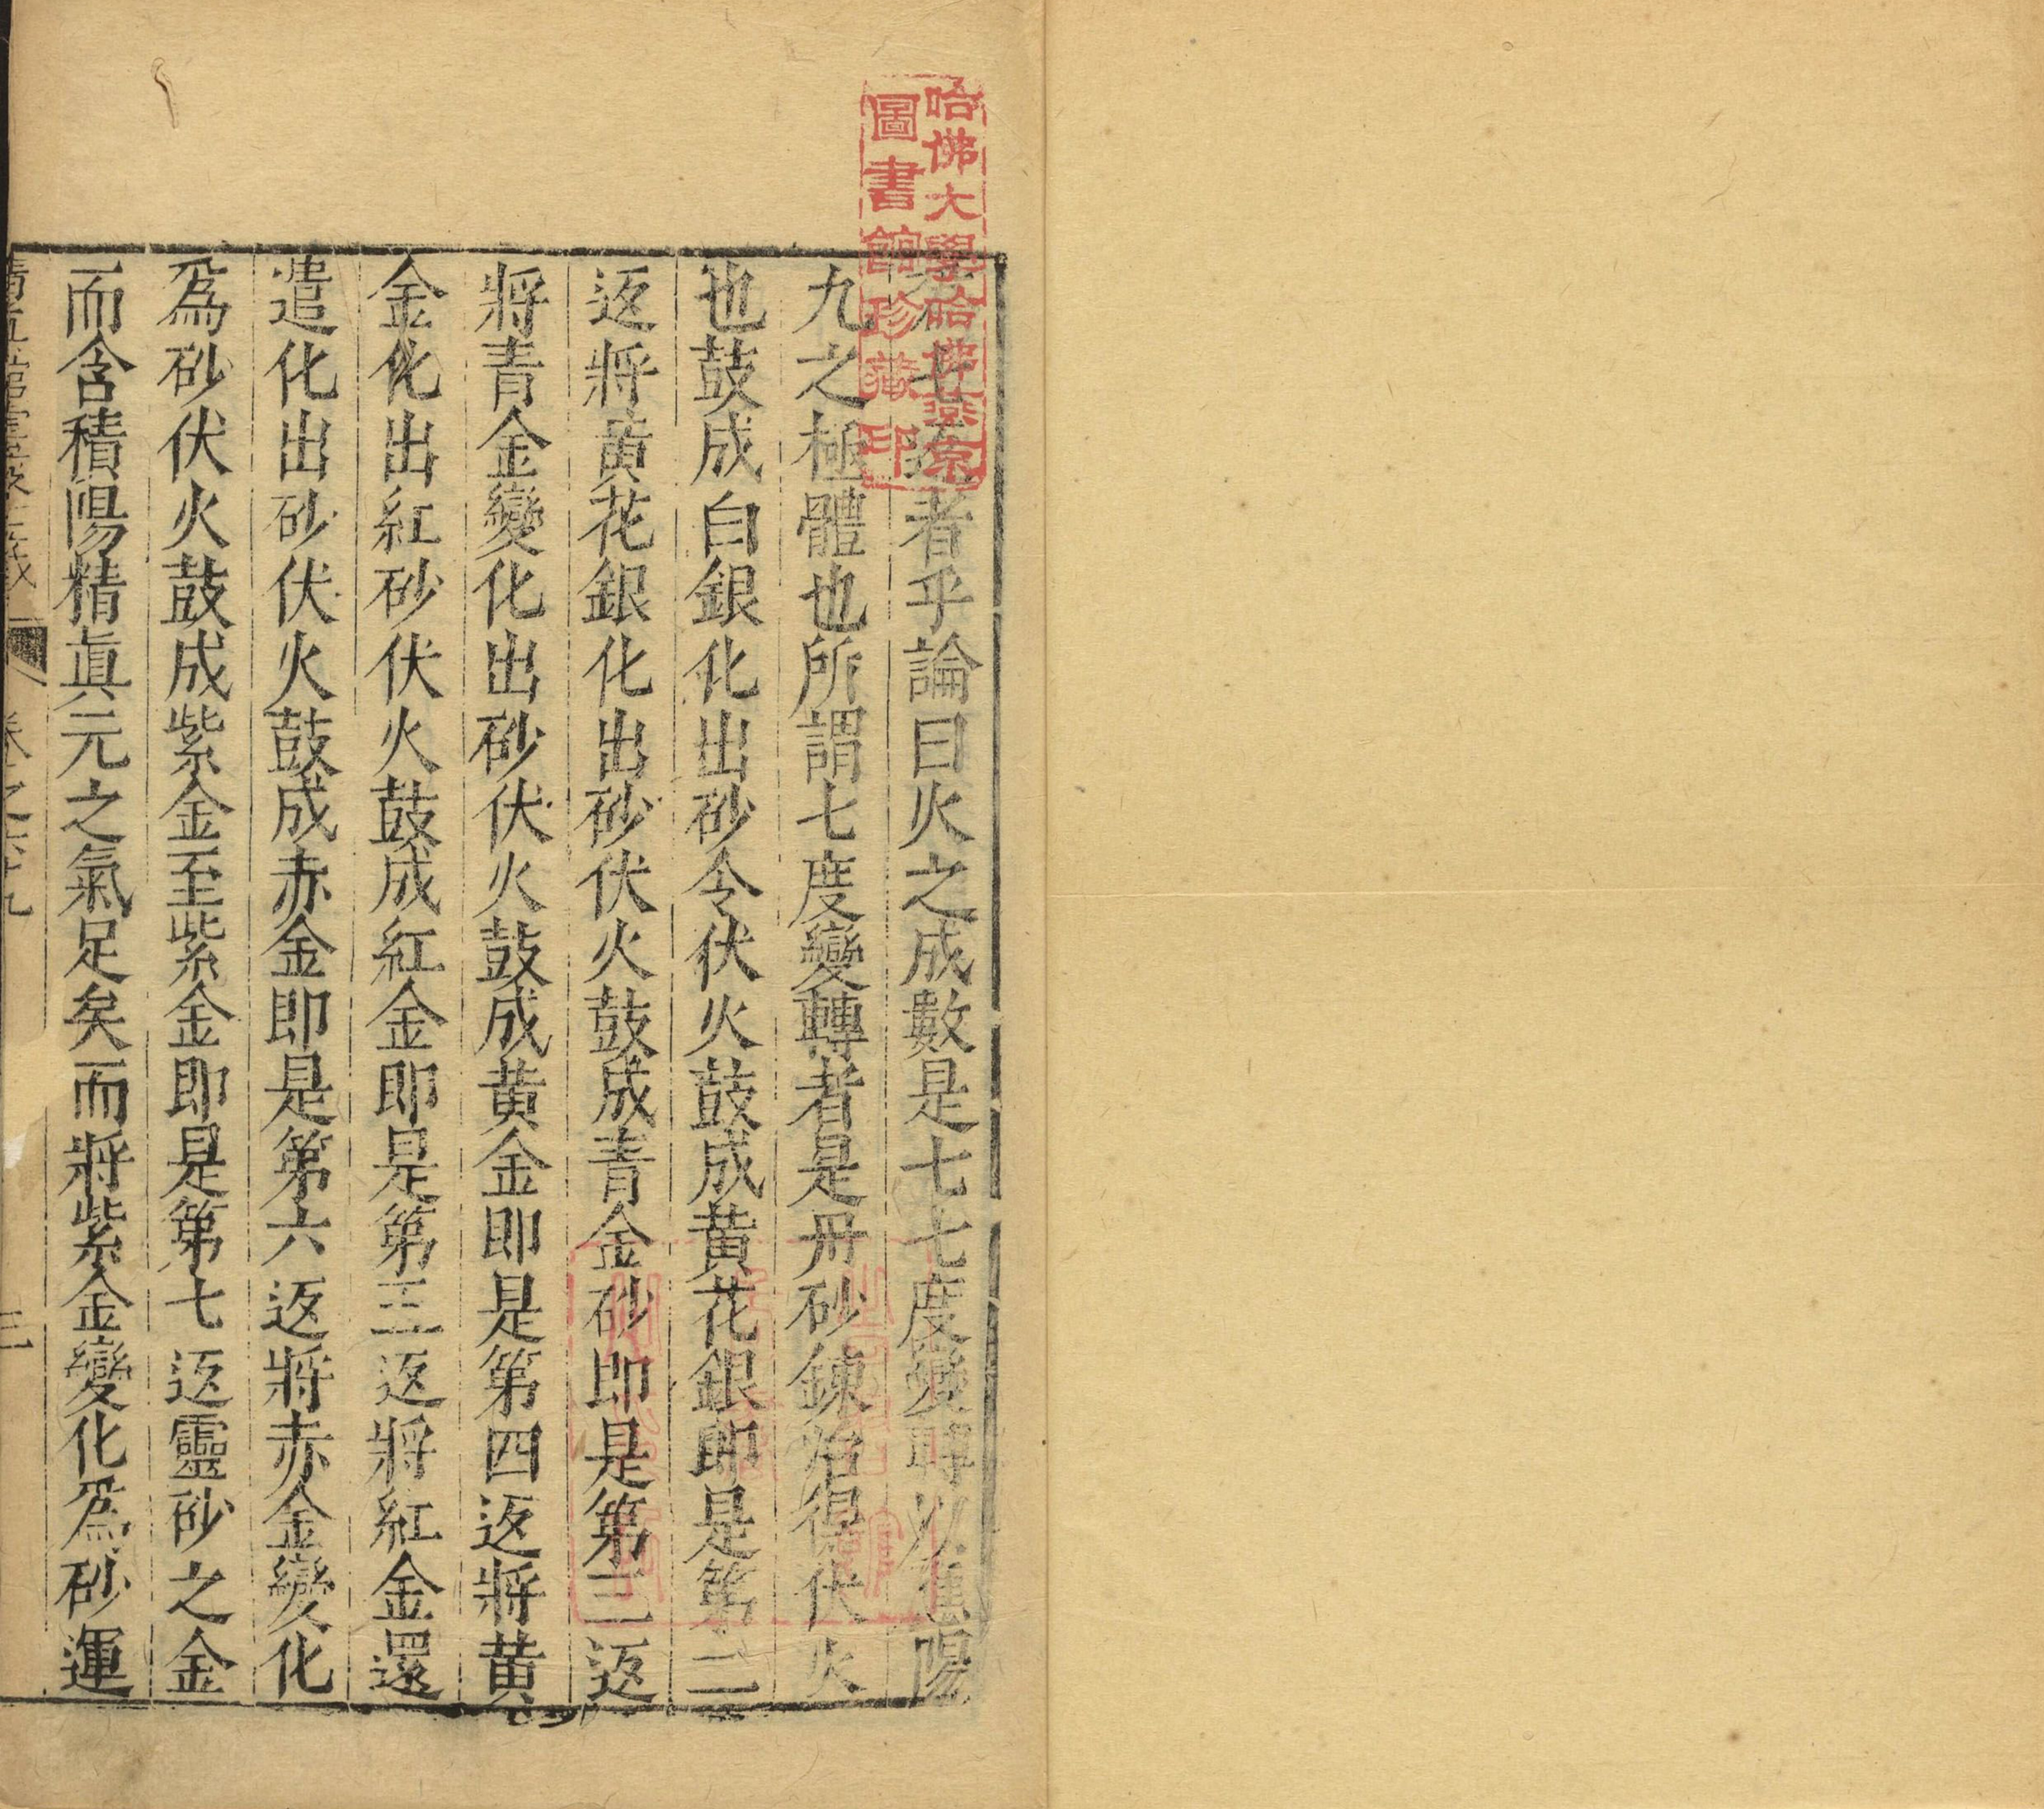 七返者乎論曰火之成數是七七度變轉以應陽
九之極體也所謂七度變轉者是丹砂鍊治得伏火
也鼓成白銀化出砂令伏火鼓成黄花銀即是第二
返將黄花銀化出砂伏火鼓成青金砂即是第三返
將青金變化出砂伏火鼓成黄金即是第四返將黄
金化出紅砂伏火鼓成紅金即是第五返將紅金還
遣化出砂伏火鼓成赤金即是第六返將赤金變化
爲砂伏火鼓成紫金至紫金即是第七返靈砂之金
而含積陽精眞元之氣足矣而將紫金變化爲砂運
卷之六十九
三
哈佛大學哈佛燕京
圖書館珍藏印